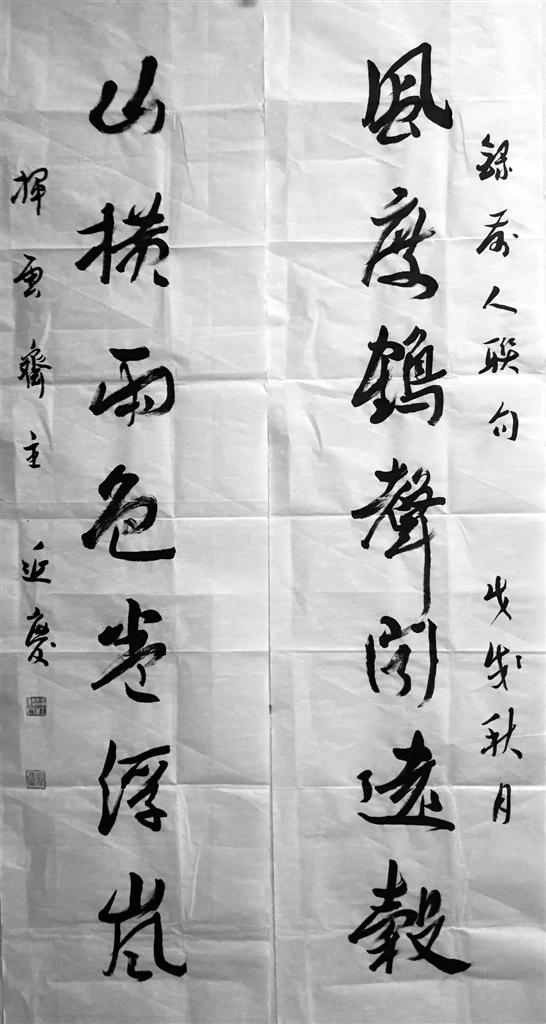 錄前人聯句 戊戌秋月
風度鶴聲聞遠轂
山橫雨色卷浮嵐
揮雲齋主 延慶